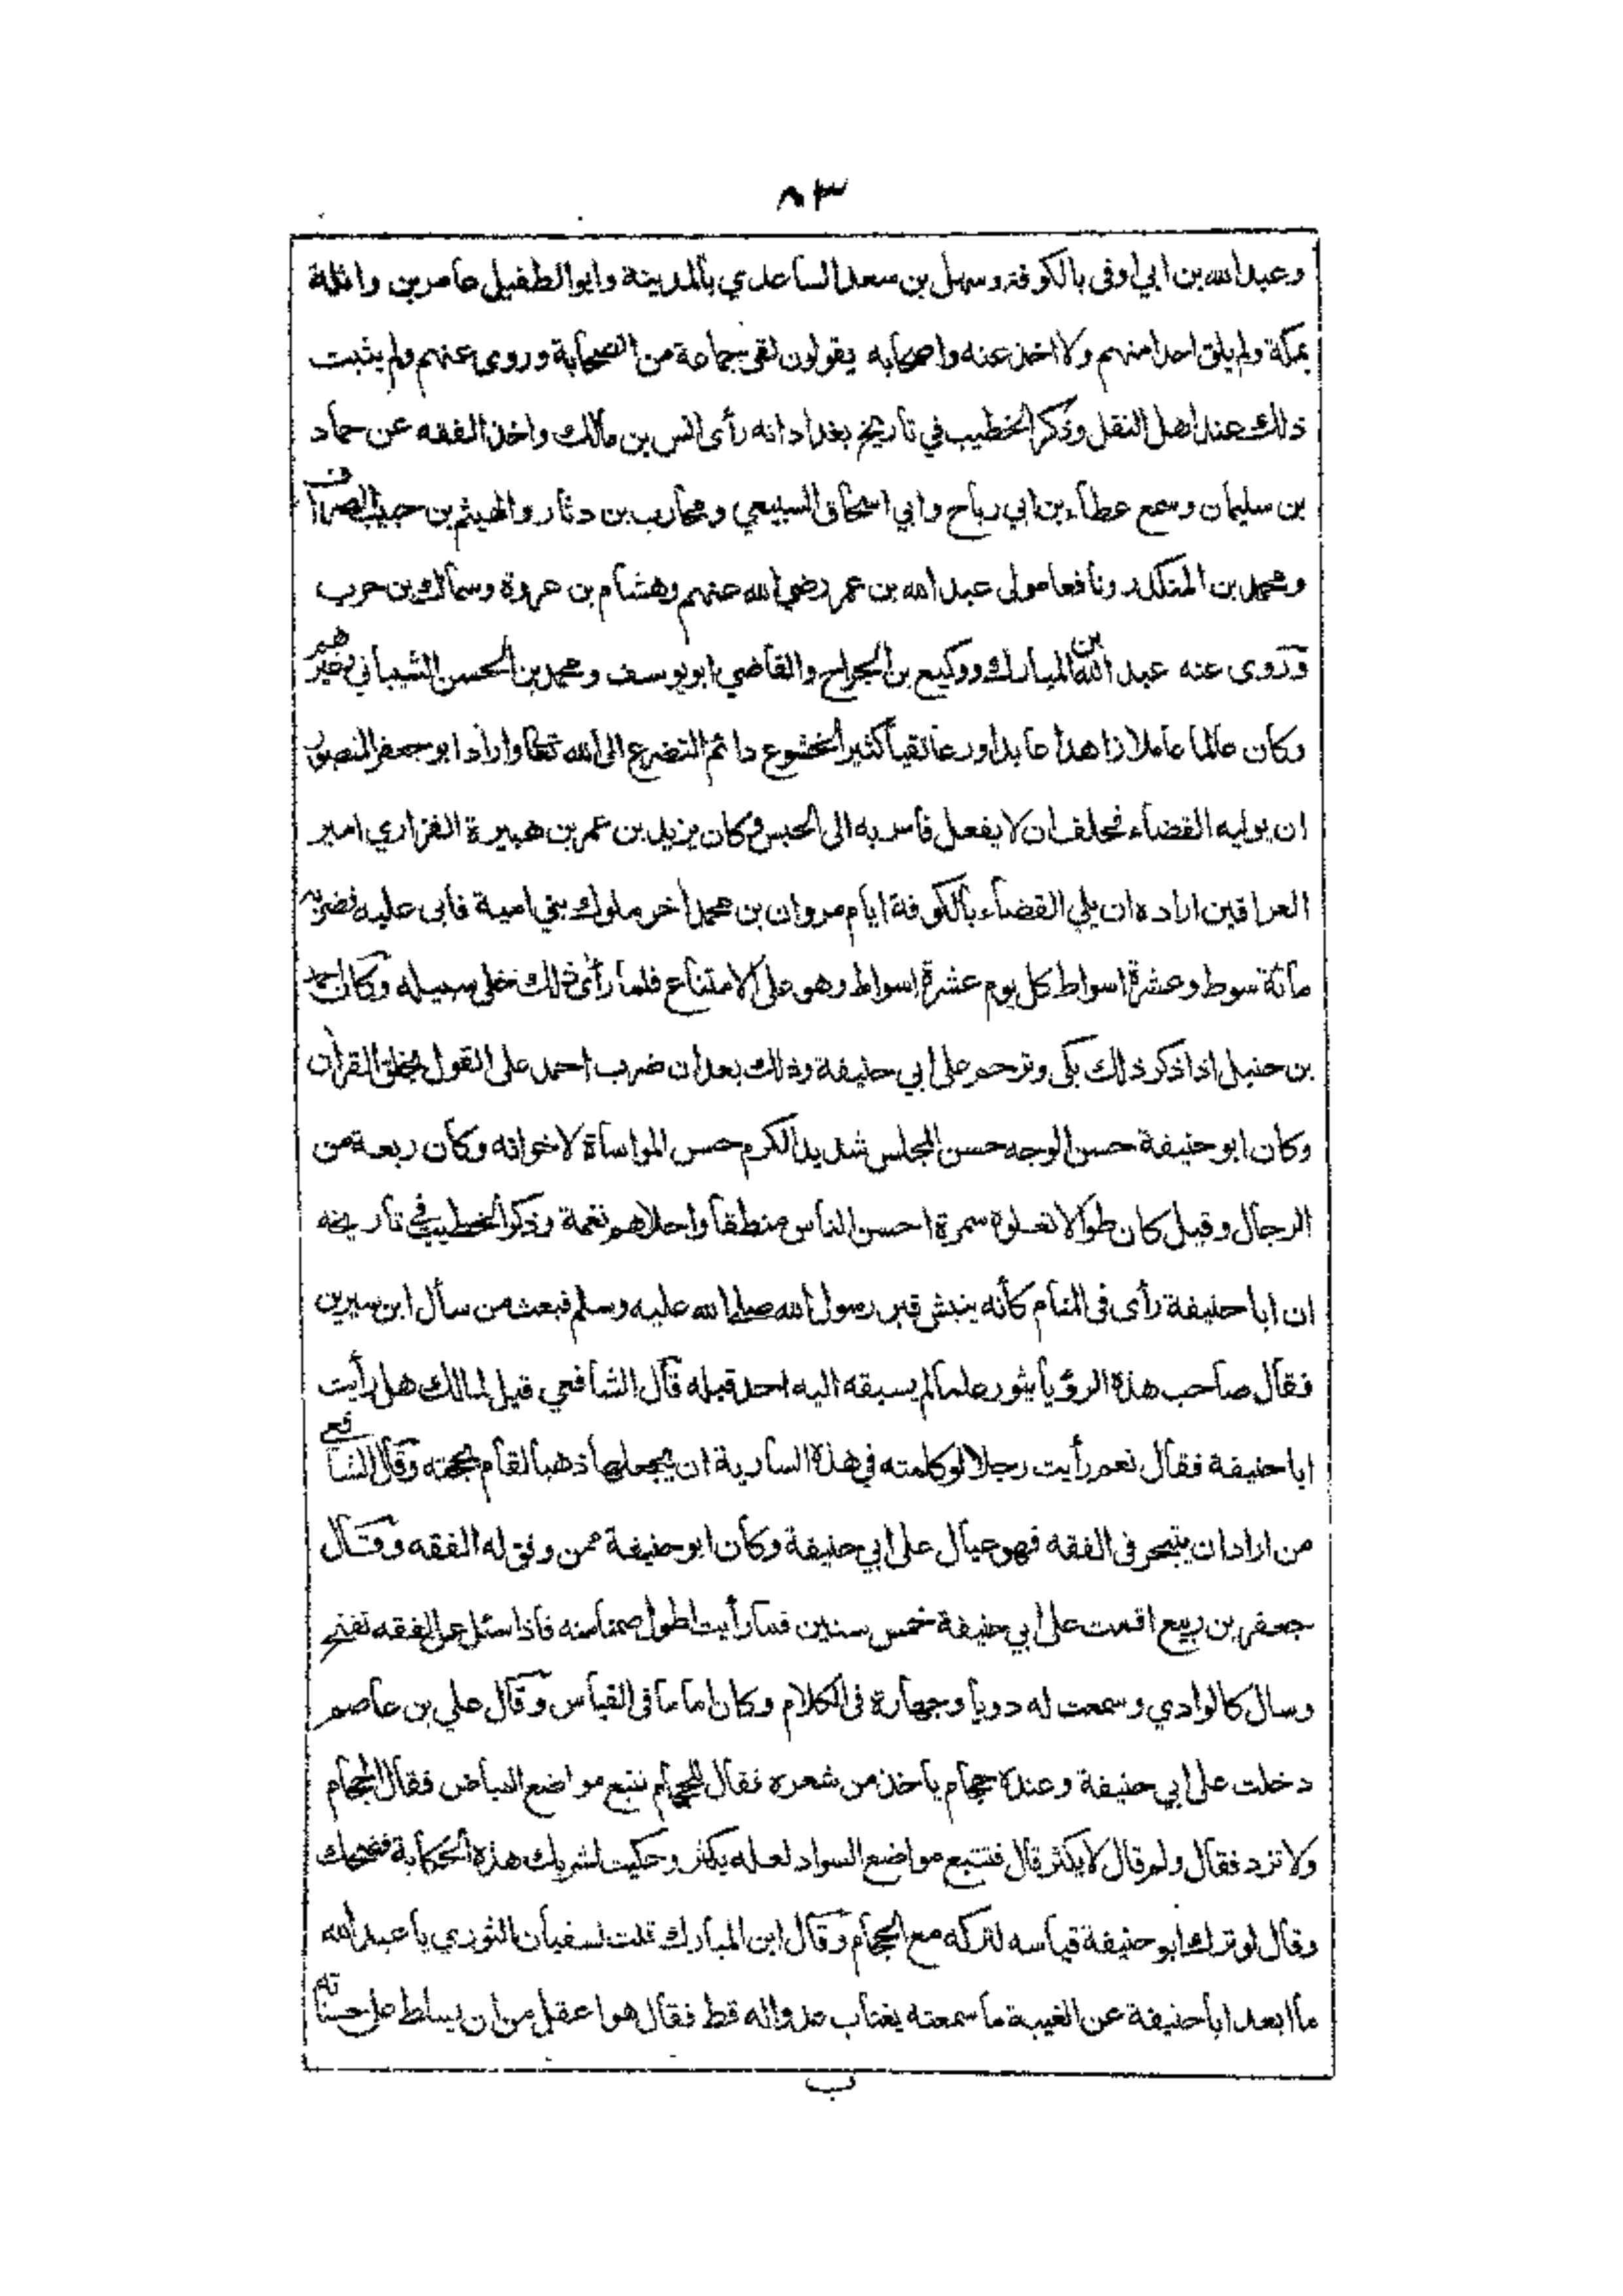 ٨٣
وعبد الله بن ابي اوفى بالكوفة وسهل بن سعد الساعدي بالمدينة وابو الطفيل عامر بن واثلة
بمكة ولم يلق احدا منهم ولا اخذ عنه واصحابه يقولون لقى جماعة من الصحابة وروى عنهم ولم يثبت
ذلك عند اهل النقل وذكر الخطيب في تاريخ بغداد انه رأى انس بن مالك واخذ الفقه عن حماد
بن سليمان وسمع عطاء بن ابي رباح وابي اسحاق السبيعي ومحارب بن دثار والهيثم بن حبيب الصراف
ومحمد بن المنكدر ونافعا مولى عبد الله بن عمر رضي الله عنهم وهشام بن عروة وسماك بن حرب
وروى عنه عبد الله بن المبارك ووكيع بن الجراح والقاضي ابو يوسف ومحمد بن الحسن الشيباني وغيرهم
وكان عالما عاملا زاهدا عابدا ورعا تقيا كثير الخشوع دائم التضرع الى الله تعالى واراد ابو جعفر المنصور
ان يوليه القضاء فحلف ان لا يفعل فأمر به الى الحبس وكان يزيد بن عمر بن هبيرة الفزاري امير
العراقين اراده ان يلي القضاء بالكوفة ايام مروان بن محمد اخر ملوك بني امية فابى عليه فضربه
مائة سوط وعشرة اسواط كل يوم عشرة اسواط وهو على الامتناع فلما رأى ذلك خلى سبيله وكان احمد
بن حنبل اذا ذكر ذلك بكى وترحم على ابي حنيفة وذلك بعد ان ضرب احمد على القول بخلق القرآن
وكان ابو حنيفة حسن الوجه حسن المجلس شديد الكرم حسن المواساة لاخوانه وكان ربعة من
الرجال وقيل كان طوالا تعلوه سمرة احسن الناس منطقا واحلاهم نغمة وذكر الخطيب في تاريخه
ان ابا حنيفة رأى في المنام كأنه ينبش قبر رسول الله صلى الله عليه وسلم فبعث من سأل ابن سيرين
فقال صاحب هذه الرؤيا يثور علما لم يسبقه اليه احد قبله قال الشافعي قيل لمالك هل رأيت
ابا حنيفة فقال نعم رأيت رجلا لو كلمته في هذه السارية ان يجعلها ذهبا لقام بحجته وقال الشافعي
من اراد ان يتبحر في الفقه فهو عيال على ابي حنيفة وكان ابو حنيفة ممن وفق له الفقه وقال
جعفر بن ربيع اقمت على ابي حنيفة خمس سنين فما رأيت اطول صمتا منه فاذا سئل عن الفقه تفتح
وسال كالوادي وسمعت له دويا وجهارة في الكلام وكان اماما في القياس وقال علي بن عاصم
دخلت على ابي حنيفة وعنده حجام يأخذ من شعره فقال للحجام تتبع مواضع البياض فقال الحجام
ولا تزد فقال ولم قال لا يكثر قال فتتبع مواضع السواد لعله يكثر وحكيت لشريك هذه الحكاية فضحك
وقال لو ترك ابو حنيفة قياسه لتركه مع الحجام وقال ابن المبارك قلت لسفيان الثوري يا عبد الله
ما ابعد ابا حنيفة عن الغيبة ما سمعته يغتاب عدوا له قط فقال هو اعقل من ان يسلط على حسناته
ب